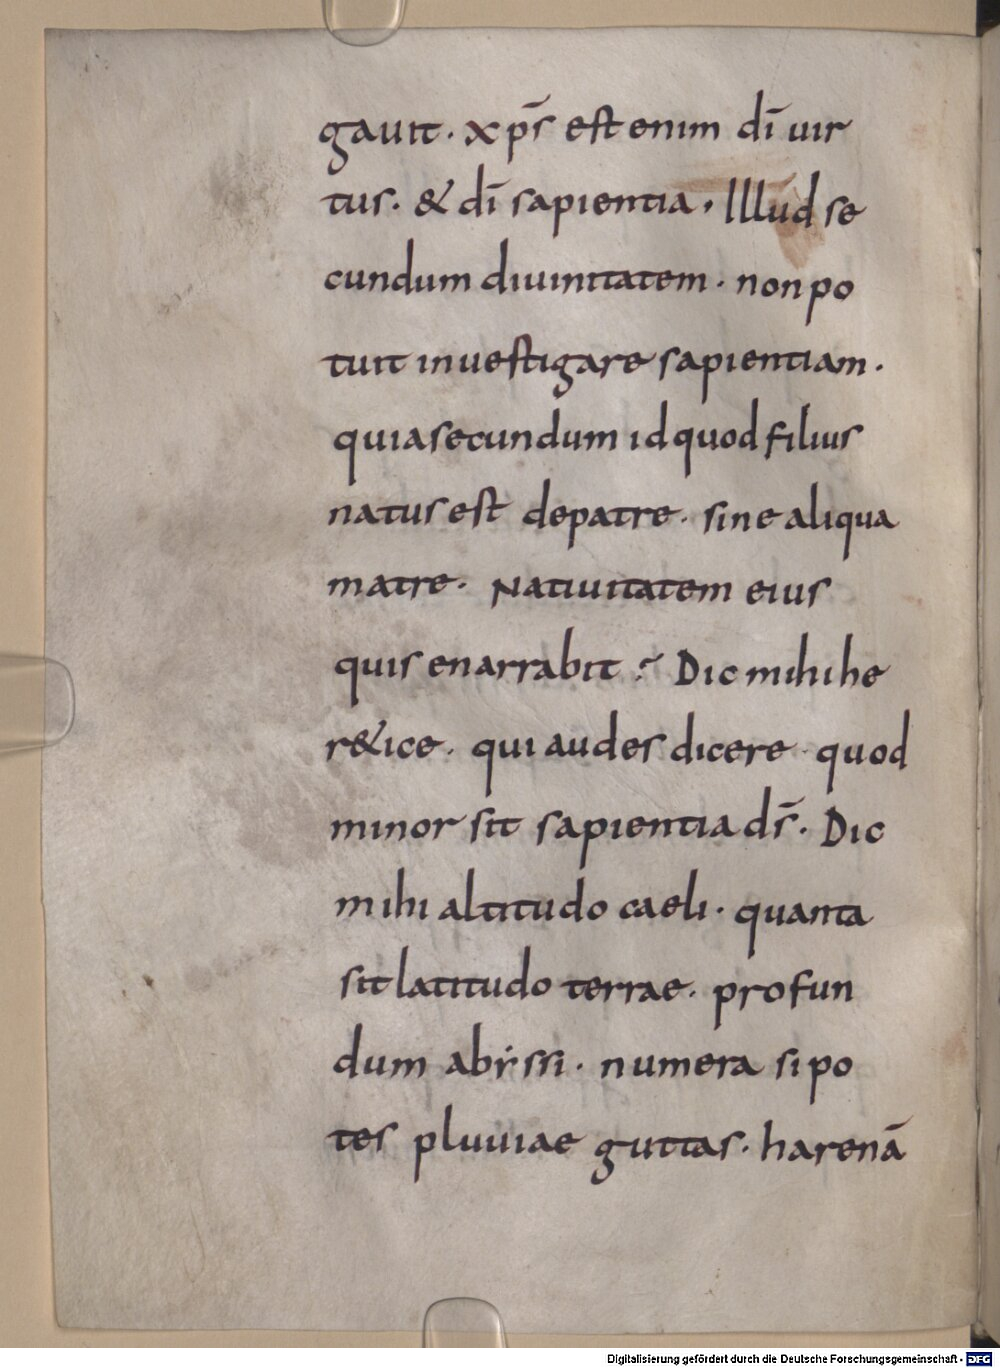 gauit· xp̄s est enim dī uir
tus· & dī sapientia· Illud se
cundum diuinitatem· non po
tuit inuestigare sapientiam·
quia secundum id quod filius
natus est de patre· sine aliqua
matre· Natiuitatem eius
quis enarrabit? Dic mihi he
r&ice· qui audes dicere· quod
minor sit sapientia ds̄· Dic
mihi altitudo caeli· quanta
sit latitudo terrae· profun
dum abẏssi· numera si po
tes pluuiae guttas· harenā
Digitalisierung gefördert durch die Deutsche Forschungsgemeinschaft - DFG